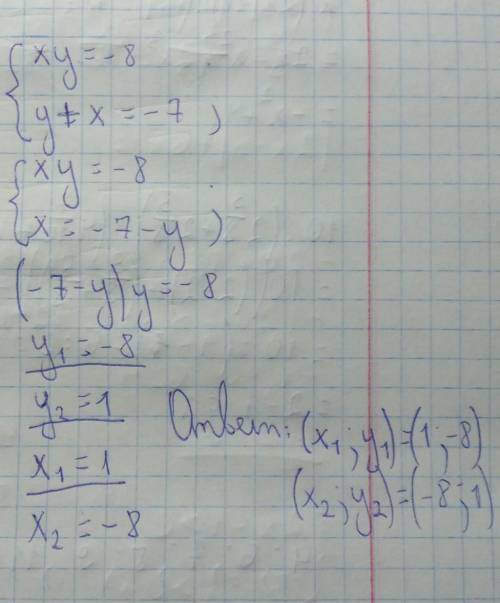 { xy = -8
y + x = -7 ,
{ xy = -8
x = -7 - y ,
(-7-y)y = -8
y₁ = -8
y₂ = 1
x₁ = 1
x₂ = -8
Ответ: (x₁; y₁) = (1; -8)
(x₂; y₂) = (-8; 1)